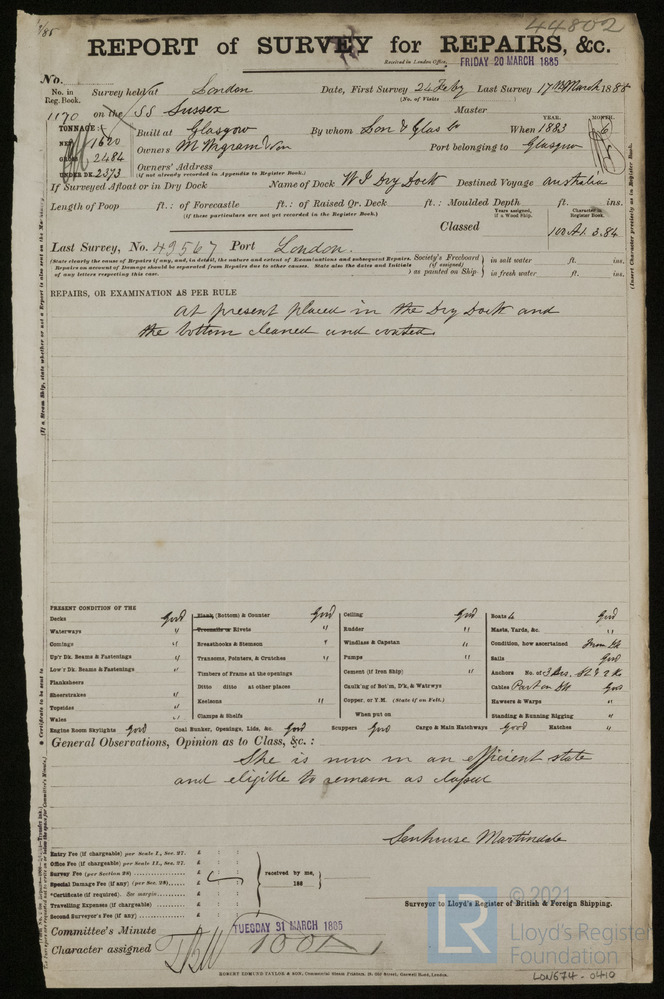 44802
REPORT of SURVEY for REPAIRS, &c.
Received in London Office, FRIDAY 20 MARCH 1885
No.
No. in Reg. Book. Survey held at London Date, First Survey 24 Feby Last Survey 17th March 1885
(No. of Visits
1170 on the SS Sussex Master
TONNAGE: Built at Glasgow By whom Lon & Glas Co When 1883 YEAR. MONTH. 6
NET 1620
GROSS 2484 Owners Port belonging to Glasgow
UNDER DK. 2373 Owners' Address
(if not already recorded in Appendix to Register Book.)
If Surveyed Afloat or in Dry Dock Name of Dock W I Dry Dock Destined Voyage Australia
Length of Poop ft.: of Forecastle ft.: of Raised Qr. Deck ft.: Moulded Depth ft. ins.
(If these particulars are not yet recorded in the Register Book.)
Years assigned, if a Wood Ship. Character in Register Book.
Classed 100 A1. 3.84
Last Survey, No. 49567 Port London.
(State clearly the cause of Repairs if any, and, in detail, the nature and extent of Examinations and subsequent Repairs.
Repairs on account of Damage should be separated from Repairs due to other causes. State also the dates and Initials
of any letters respecting this case.
Society's Freeboard (if assigned) as painted on Ship } in salt water ft. ins.
in fresh water ft. ins.
REPAIRS, OR EXAMINATION AS PER RULE
At present placed in the Dry Dock and
the bottom cleaned and coated.
PRESENT CONDITION OF THE
Decks Good Plank (Bottom) & Counter Good Ceiling Good Boats Good
Waterways " Treenails or Rivets " Rudder " Masts, Yards, &c. "
Comings " Breasthooks & Stemson " Windlass & Capstan " Condition, how ascertained From Dk
Up'r Dk. Beams & Fastenings " Transoms, Pointers, & Crutches " Pumps " Sails Good
Low'r Dk. Beams & Fastenings " Timbers of Frame at the openings Cement (if Iron Ship) " Anchors No. of 3 Brs.
Planksheers Ditto ditto at other places Caulk'ng of Bot'm, D'k, & Watrwys Cables Part on Dk Good
Sheerstrakes " Keelsons " Copper, or Y.M. (State if on Felt.) Hawsers & Warps "
Topsides " Clamps & Shelfs When put on Standing & Running Rigging "
Wales "
Engine Room Skylights Good Coal Bunker, Openings, Lids, &c. Good Scuppers Good Cargo & Main Hatchways Good Hatches "
General Observations, Opinion as to Class, &c.:
She is now in an efficient state
and eligible to remain as classed
Senhouse Martindale
Entry Fee (if chargeable) per Scale I., Sec. 27. £ : :
Office Fee (if chargeable) per Scale II., Sec. 27. £ : :
Survey Fee (per Section 28) £ : :
Special Damage Fee (if any) (per Sec. 28) £ : :
*Certificate (if required). See margin. £ : :
Travelling Expenses (if chargeable) £ : :
Second Surveyor's Fee (if any) £ : :
received by me,
188
Surveyor to Lloyd's Register of British & Foreign Shipping.
Committee's Minute TUESDAY 31 MARCH 1885
Character assigned 100A1
ROBERT EDMUND TAYLOR & SON, Commercial Steam Printers, 19, Old Street, Goswell Road, London.
© 2021
LR
Lloyd's Register
Foundation
LON674-0410